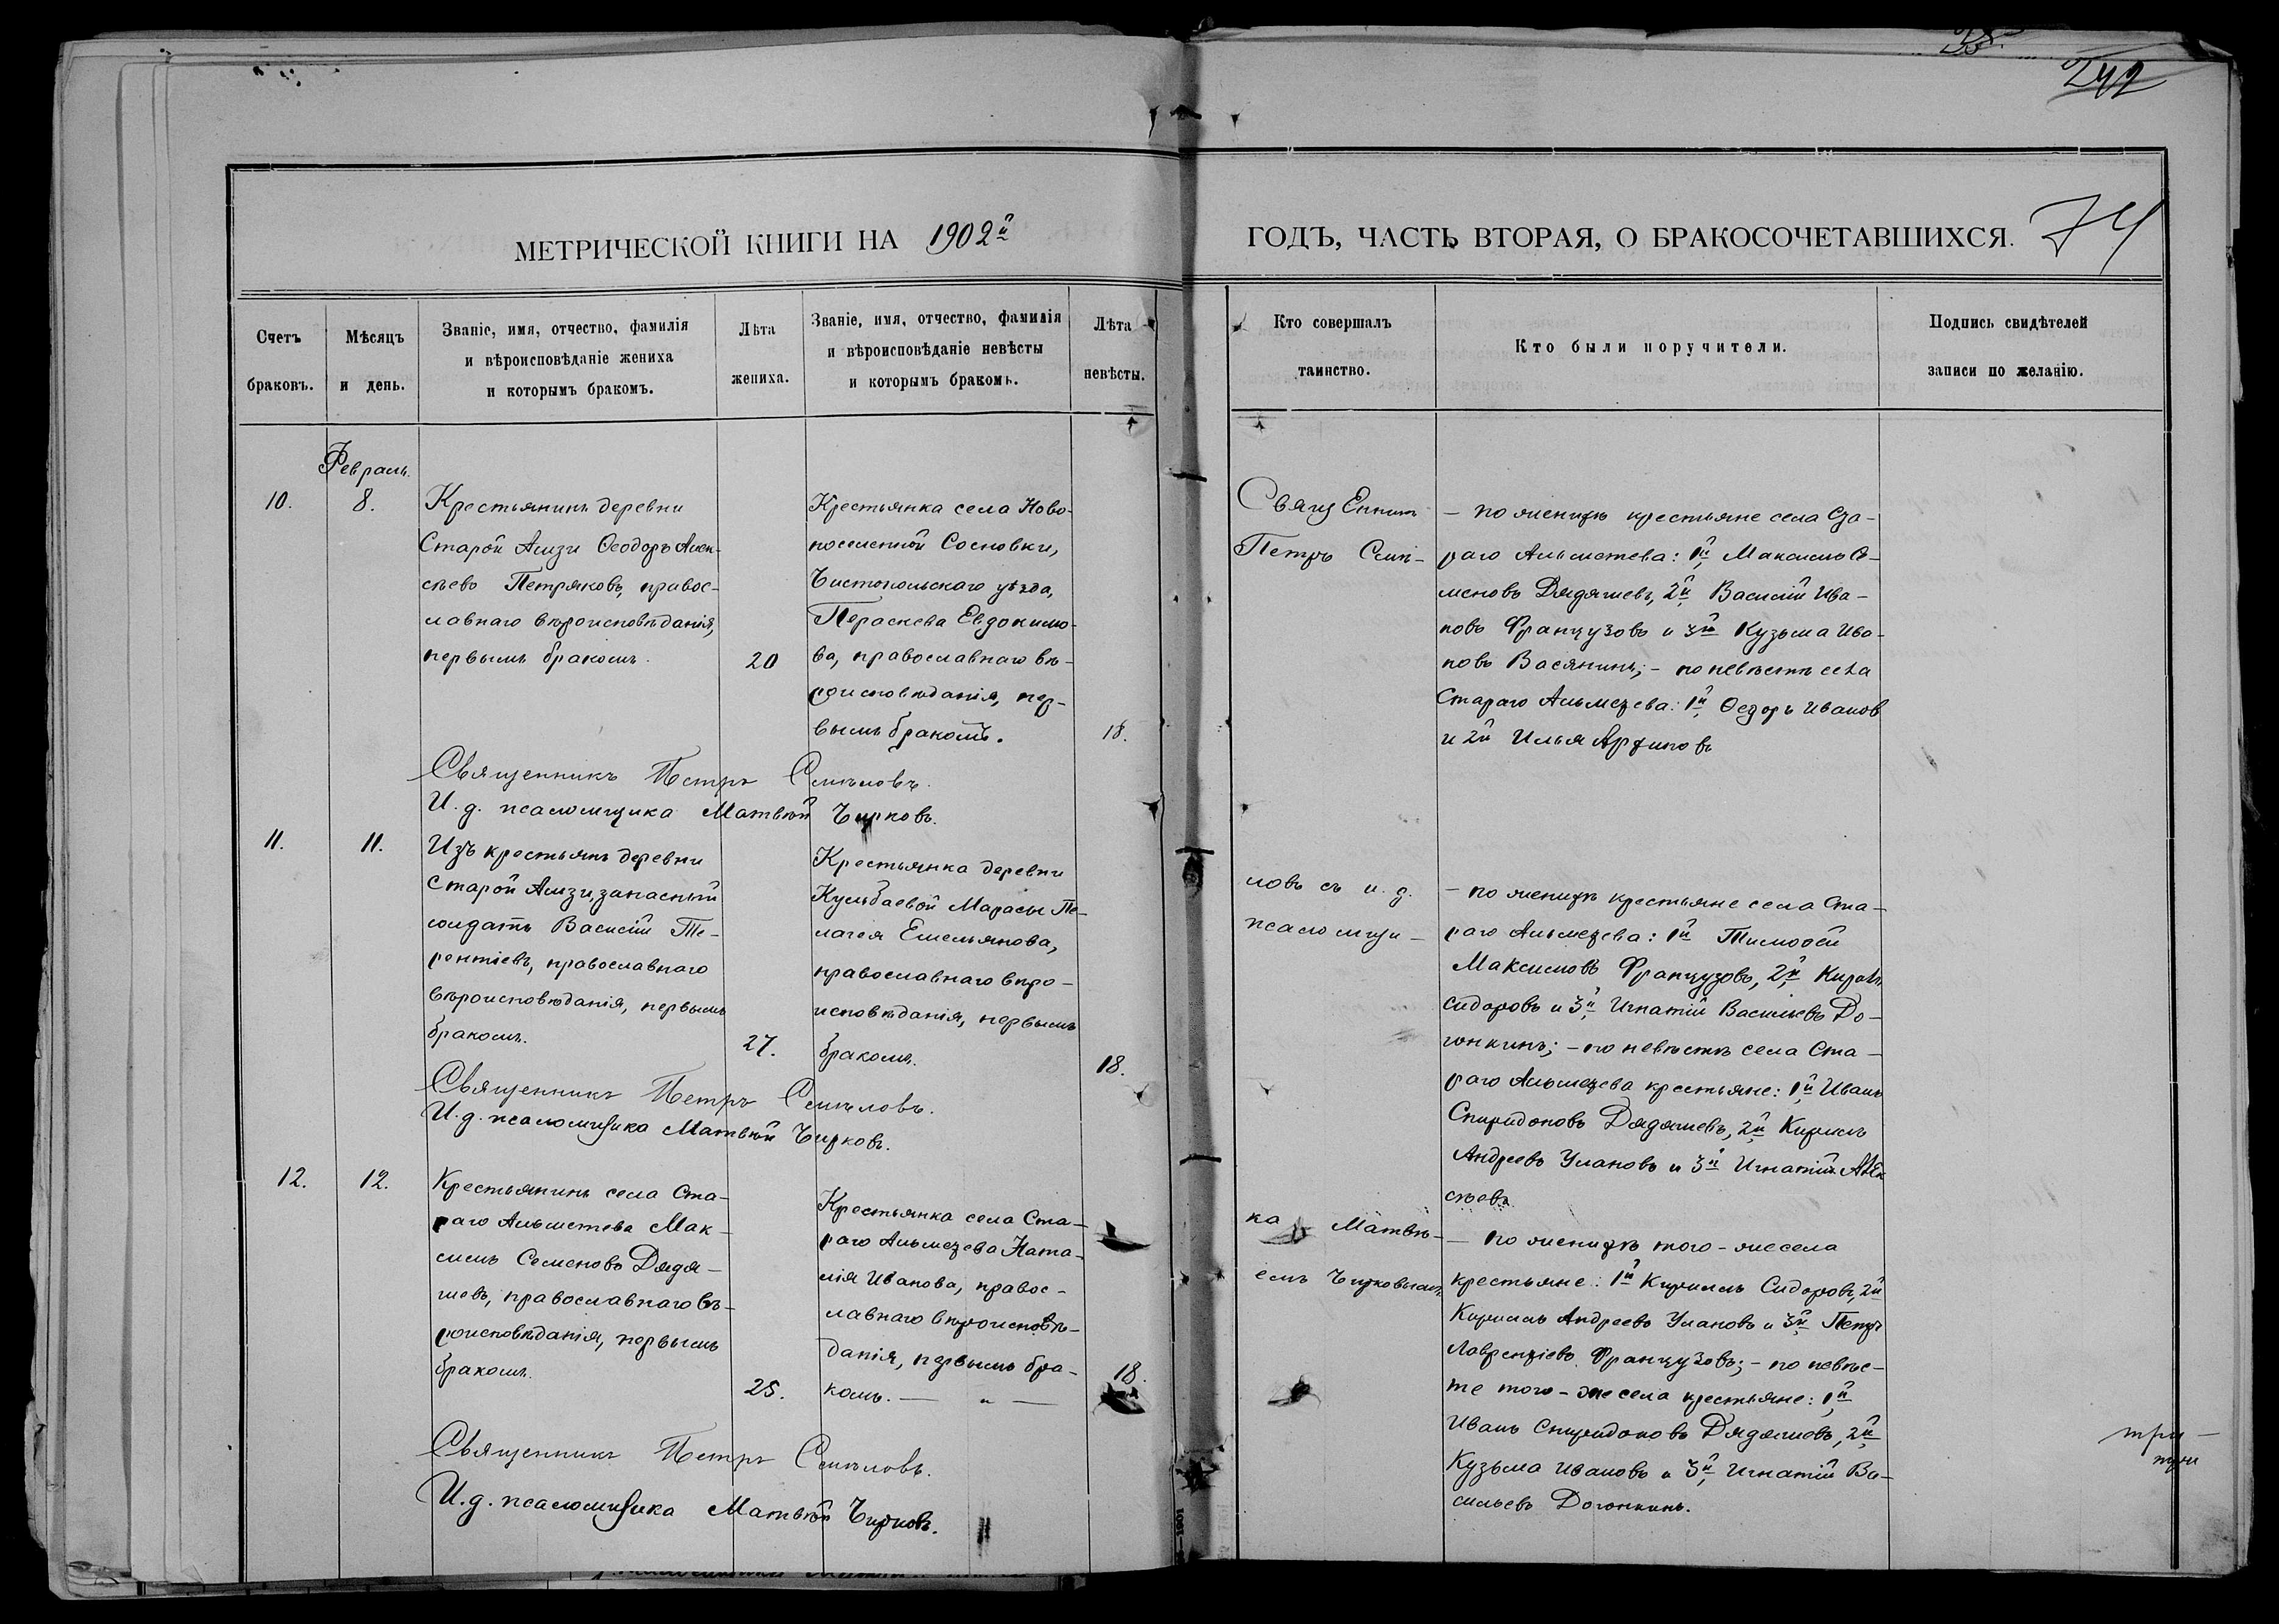 242
МЕТРИЧЕСКОЙ КНИГИ НА 1902й
ГОДЪ, ЧАСТЬ ВТОРАЯ, О БРАКОСОЧЕТАВШИХСЯ.
74
Счетъ
браковъ.
Мѣсяцъ
и день.
Званіе, имя, отчество, фамилія
и вѣроисповѣданіе жениха
и которымъ бракомъ.
Лѣта
жениха.
Званіе, имя, отчество, фамилія
и вѣроисповѣданіе невѣсты
и которымъ бракомъ.
Лѣта
невѣсты.
Кто совершалъ
таинство.
Кто были поручители.
Подпись свидѣтелей
записи по желанію.
Февраль.
10.
8.
Крестьянинъ деревни
Старой Амзи Ѳеодоръ Алек-
сѣевъ Петряковъ, правос-
лавнаго вѣроисповѣданія,
первымъ бракомъ.
20
Крестьянка села Ново-
поселенной Сосновки,
Чистопольскаго уѣзда,
Параскева Евдокимо-
ва, православнаго вѣ-
роисповѣданія, пер-
вымъ бракомъ.
18.
Священникъ Петръ Смѣловъ.
И. д. псаломщика Матвѣй Чирковъ.
Священникъ
Петръ Смѣ-
— по женихѣ крестьяне села Ста-
раго Альметева: 1й Максимъ Се-
меновъ Дядяшевъ, 2й Василій Ива-
новъ Французовъ и 3й Кузьма Ива-
новъ Васянинъ; — по невѣстѣ села
Стараго Альметева: 1й Ѳедоръ Ивановъ
и 2й Илья
11.
11.
Изъ крестьянъ деревни
Старой Амзи, запасный
солдатъ Василій Те-
рентіевъ, православнаго
вѣроисповѣданія, первымъ
бракомъ.
27.
Крестьянка деревни
Кульбаевой Марасы Пе-
лагея Емельянова,
православнаго вѣро-
исповѣданія, первымъ
бракомъ.
18.
Священникъ Петръ Смѣловъ.
И. д. псаломщика Матвѣй Чирковъ.
ловъ съ и. д.
псаломщи-
— по женихѣ крестьяне села Ста-
раго Альметева: 1й Тимофей
Максимовъ Французовъ, 2й Кирилъ
Сидоровъ и 3й Игнатій Васильевъ До-
гонкинъ; — по невѣстѣ села Ста-
раго Альметева крестьяне: 1й Иванъ
Спиридоновъ Дядяшевъ, 2й Кирилъ
Андреевъ Улановъ и 3й Игнатій Алек
сѣевъ
12.
12.
Крестьянинъ села Ста-
раго Альметева Мак-
симъ Семеновъ Дядя-
шевъ, православнаго вѣ-
роисповѣданія, первымъ
бракомъ.
25.
Крестьянка села Ста-
раго Альметева Ната-
лія Иванова, правос-
лавнаго вѣроисповѣ-
данія, первымъ бра-
комъ. — „ —
18.
Священникъ Петръ Смѣловъ.
И. д. псаломщика Матвѣй Чирковъ.
ка Матвѣ-
емъ Чирковымъ.
— по женихѣ того-же села
крестьяне: 1й Кириллъ Сидоровъ, 2й
Кириллъ Андреевъ Улановъ и 3й Петръ
Лаврентіевъ Французовъ; — по невѣс-
те того-же села крестьяне: 1й
Иванъ Спиридоновъ Дядяшевъ, 2й
Кузьма Ивановъ и 3й Игнатій Ва-
сильевъ Догонкинъ.